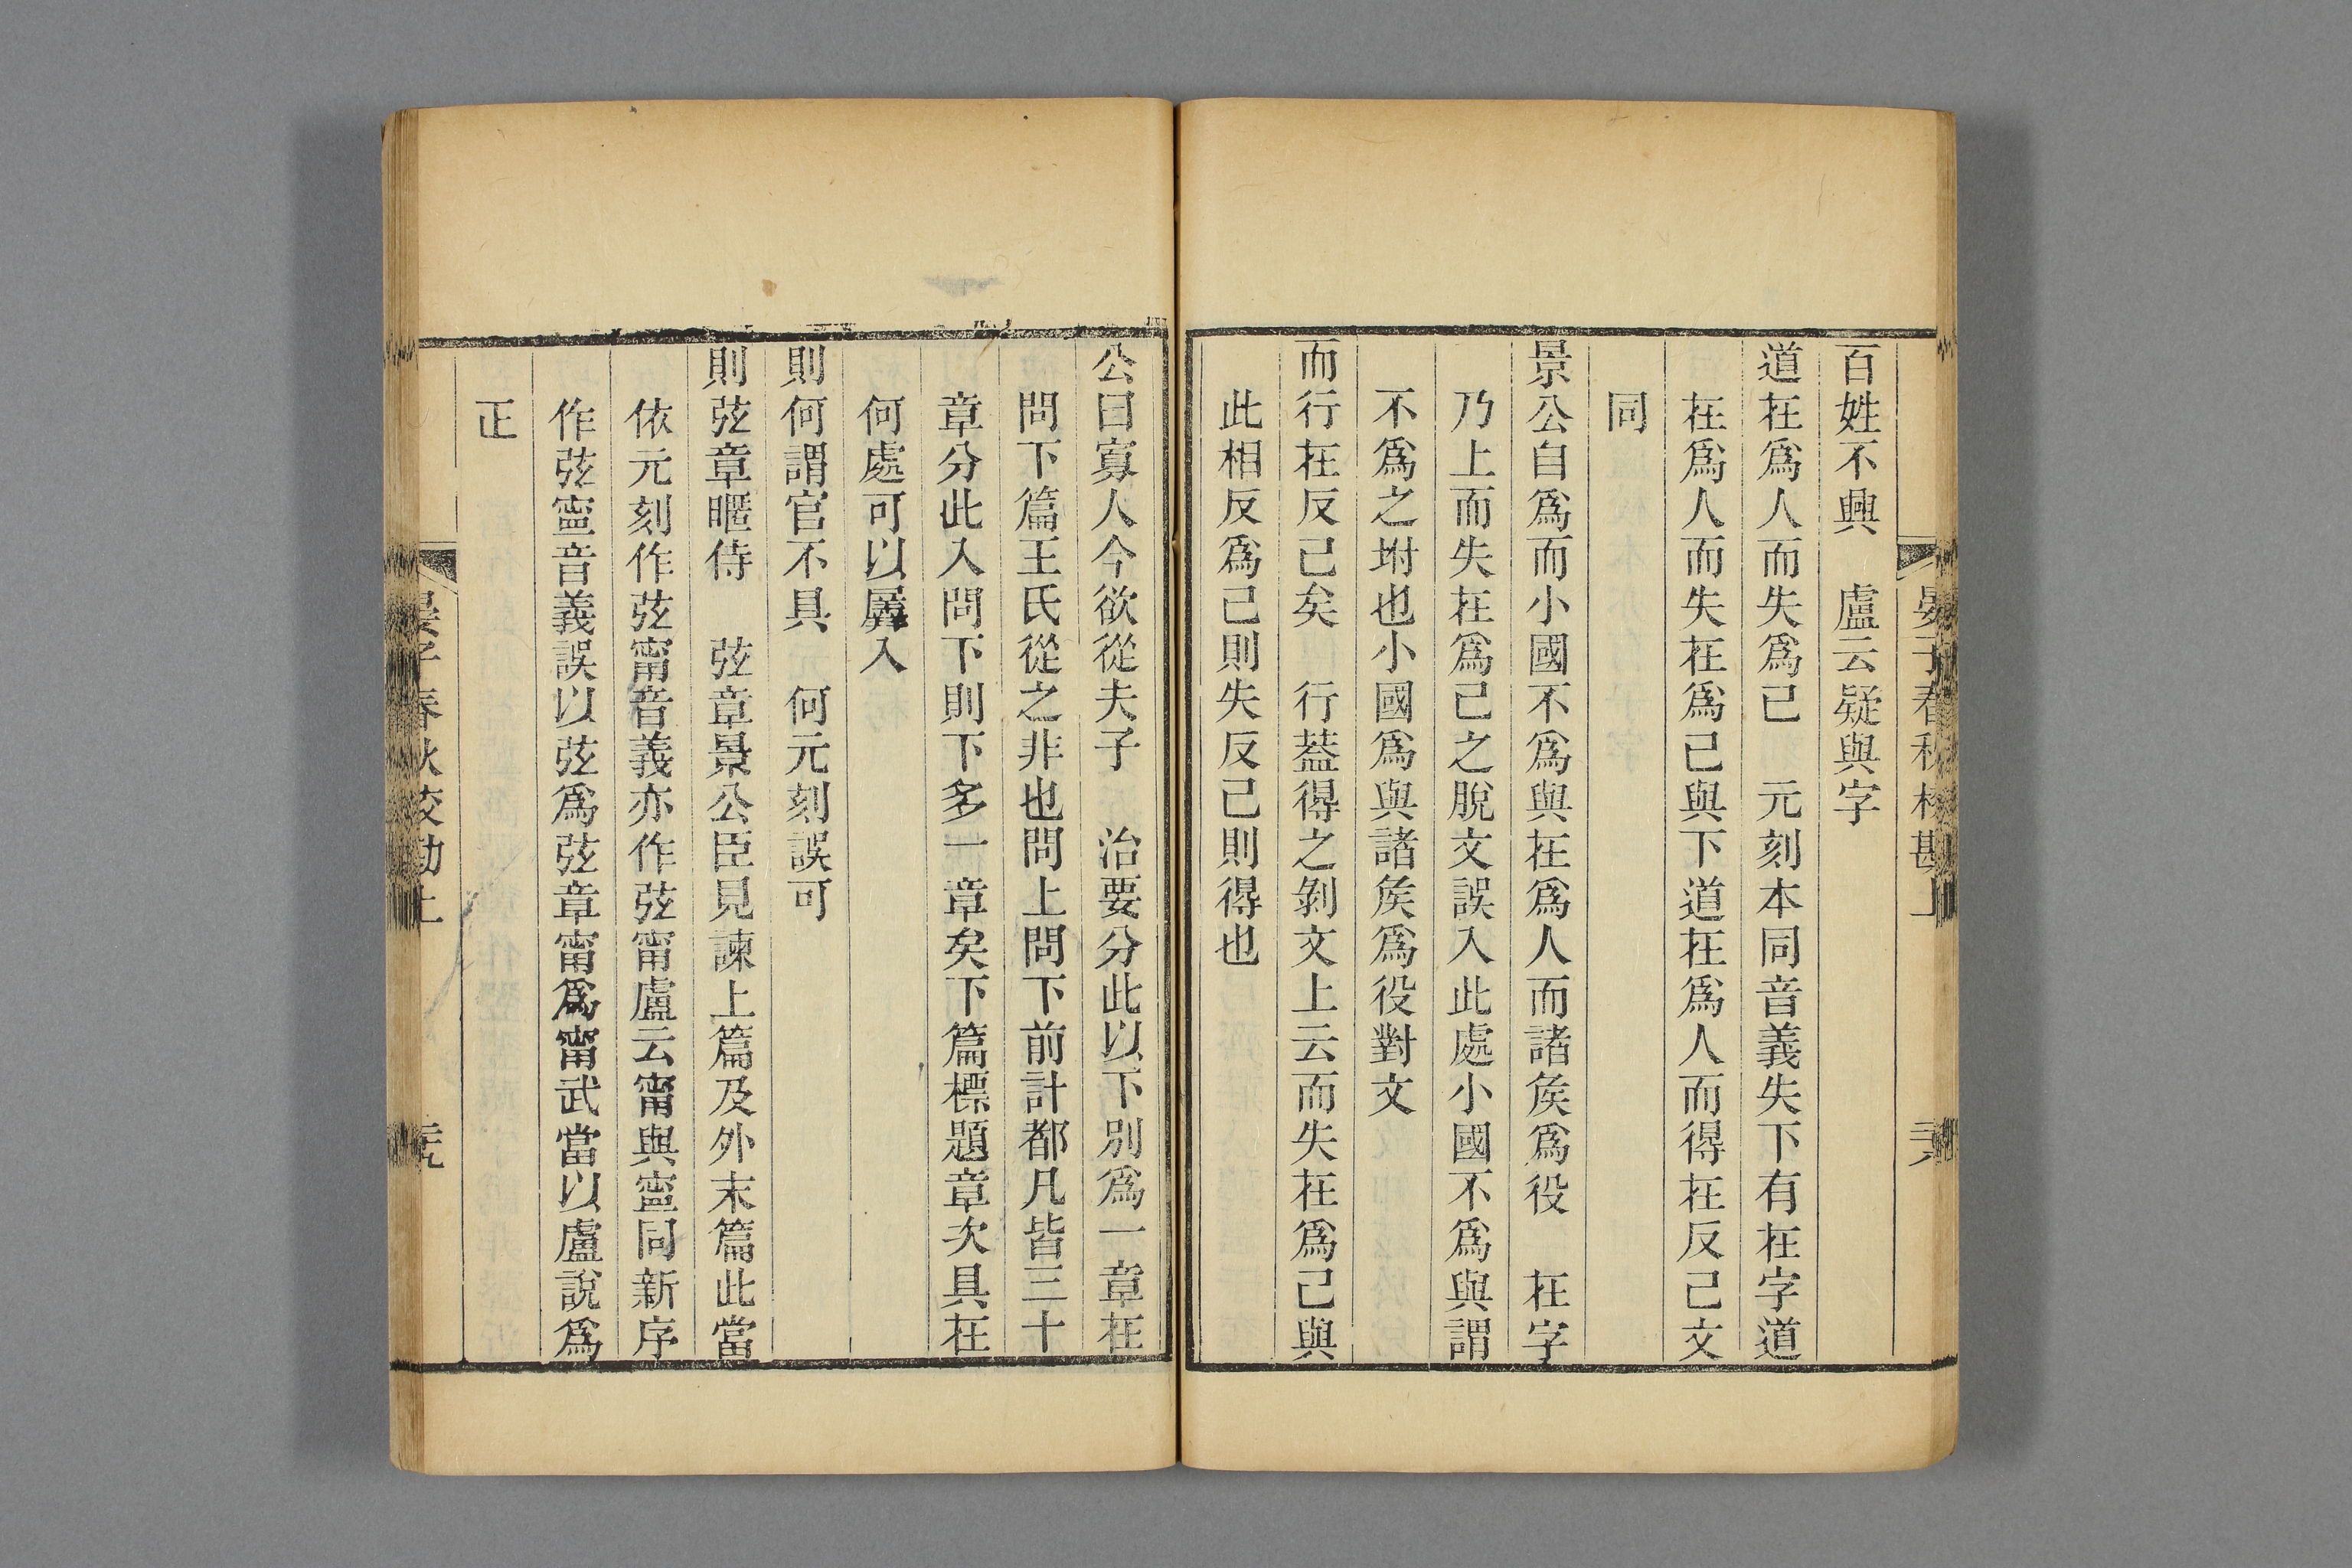 百姓不興　盧云疑與字
道在爲人而失爲己　元刻本同音義失下有在字道
在爲人而失在爲己與下道在爲人而得在反己文
同
景公自爲而小國不爲與在爲人而諸矦爲役　在字
乃上而失在爲己之脫文誤入此處小國不爲與謂
不爲之坿也小國爲與諸矦爲役對文
而行在反己矣　行葢得之剝文上云而失在爲己與
此相反爲己則失反己則得也
公曰寡人今欲從夫子　治要分此以下別爲一章在
問下篇王氏從之非也問上問下前計都凡皆三十
章分此入問下則下多一章矣下篇標題章次具在
何處可以羼入
則何謂官不具　何元刻誤可
則弦章暱侍　弦章景公臣見諫上篇及外末篇此當
依元刻作弦甯音義亦作弦甯盧云甯與寍同新序
作弦寍音義誤以弦爲弦章甯爲甯武當以盧說爲
正